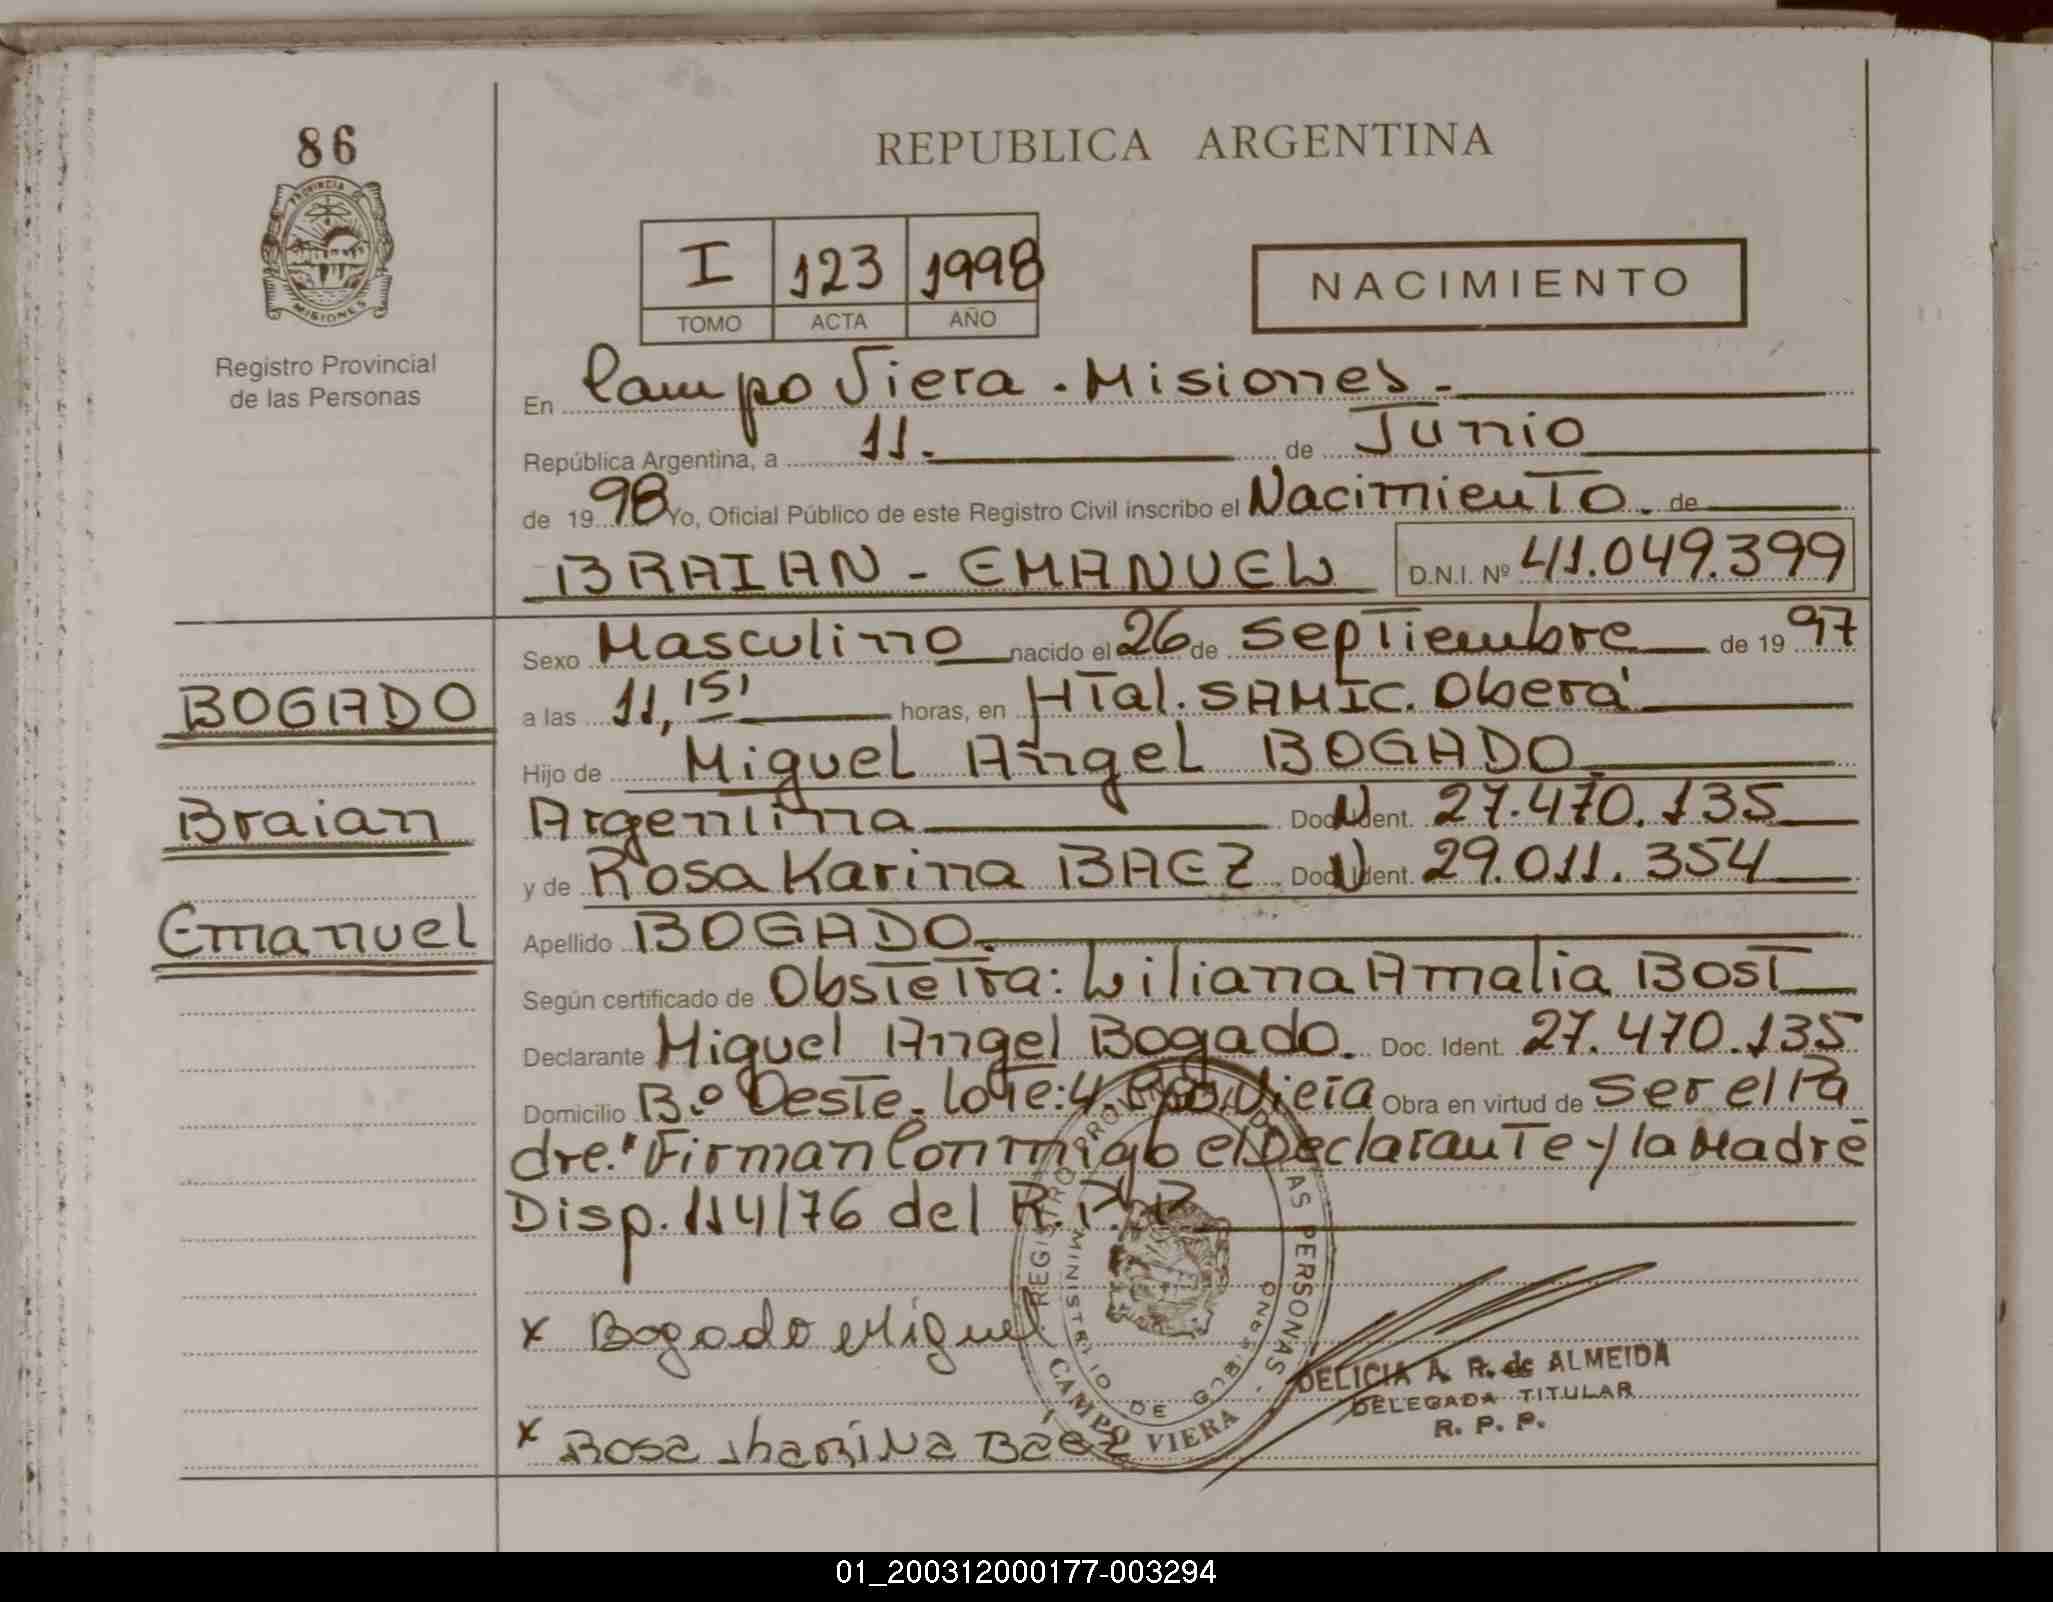 86
PROVINCIA DE
MISIONES
Registro Provincial
de las Personas
BOGADO
Braian
Emanuel
REPUBLICA ARGENTINA
I 123 1998
TOMO ACTA AÑO
NACIMIENTO
En Campo Viera . Misiones.
República Argentina, a 11. de Junio
de 1998 Yo, Oficial Público de este Registro Civil inscribo el Nacimiento. de
BRAIAN - EMANUEL D.N.I. Nº 41.049.399
Sexo Masculino nacido el 26 de septiembre de 1997
a las 11,15' horas, en Htal. SAMIC. Oberá
Hijo de Miguel Angel BOGADO
Argentina Doc. Ident. 27.470.135
y de Rosa Karina BAEZ Doc. Ident. 29.011.354
Apellido BOGADO.
Según certificado de Obstetra: Liliana Amalia Bost
Declarante Miguel Angel Bogado. Doc. Ident. 27.470.135
Domicilio B.º Oeste. lote: 4. Cpo. Viera Obra en virtud de ser el Pa
dre." Firman Conmigo el Declarante y la Madre
Disp. 114/76 del R.P.P
x Bogado Miguel
x Rosa Karina Baez
REGISTRO PROVINCIAL DE LAS PERSONAS
MINISTERIO DE GOBIERNO
CAMPO VIERA
DELICIA A. R. de ALMEIDA
DELEGADA TITULAR
R. P. P.
01_200312000177-003294